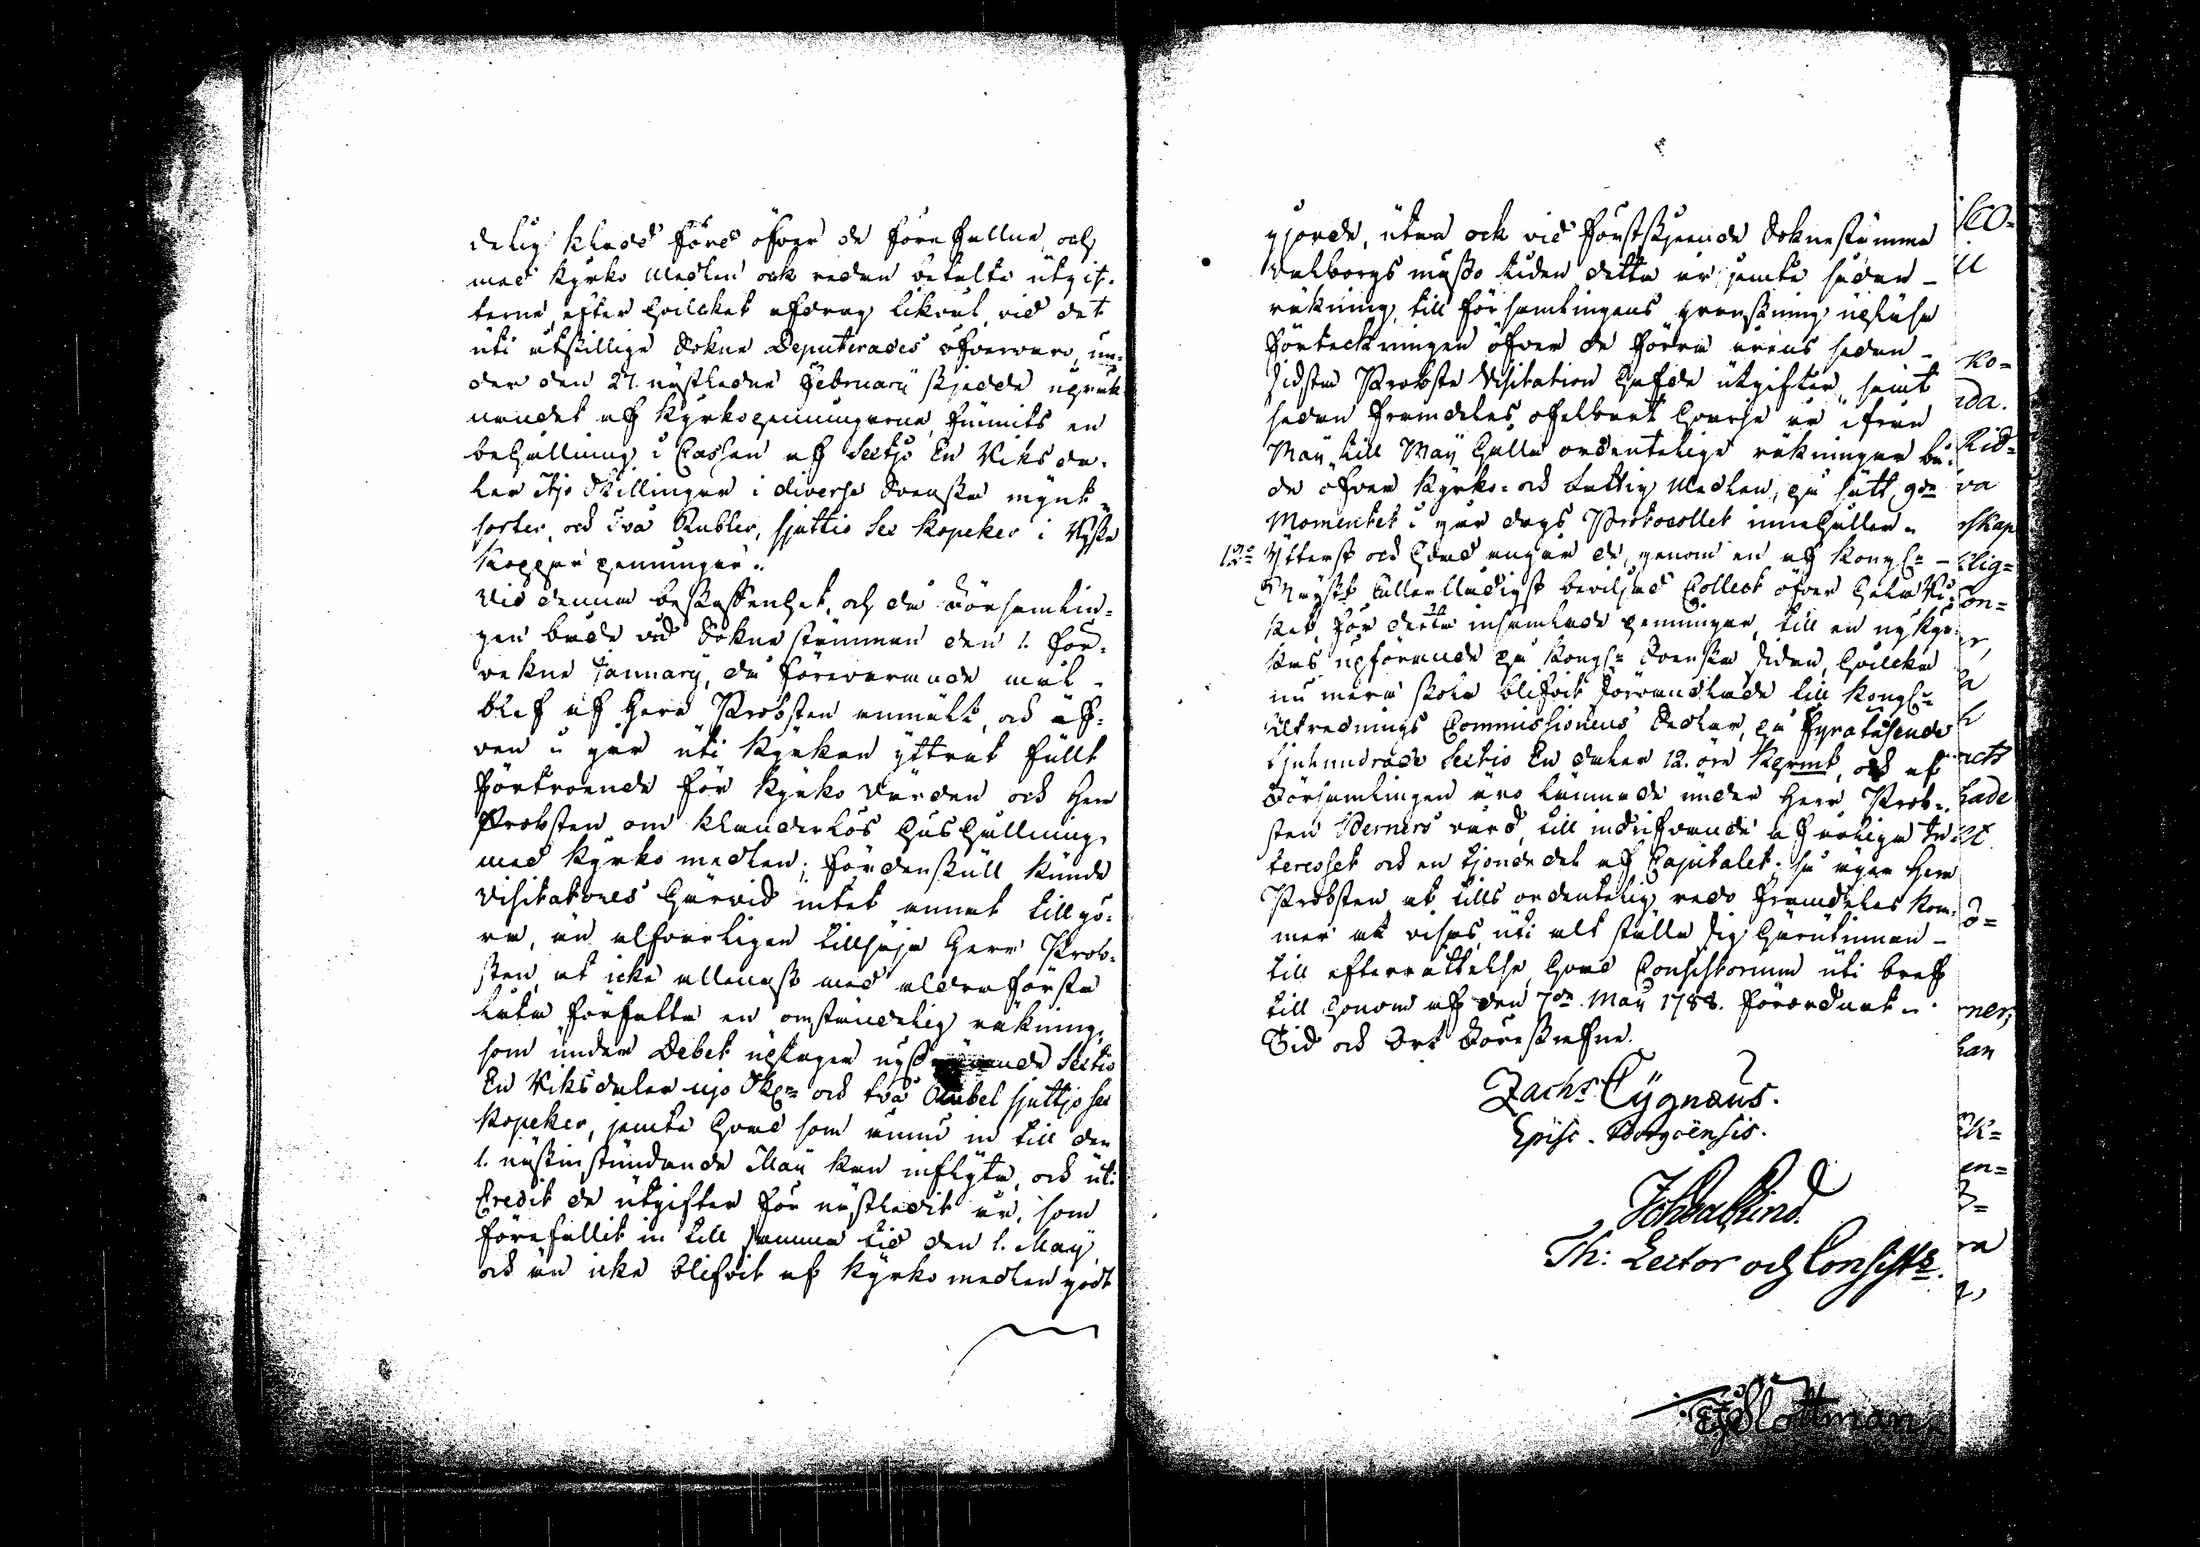 delig kladd förd öfver de förefallna och
med Kyrko Medlen ock redan betalte utgif-
terna, efter hvilket afdrag likväl, vid det
uti åtskillige Sokne Deputerades öfvervaro, un-
der den 27. nästledne February skjedde upräk-
nandet af Kyrkopenningarne, funnits en
behållning i Cassan af Sextjo En Riksda-
ler Skillingar i diverse Svenska mynt-
sorter, och Två Rubler, sjuttio Sex Kopeker i Ryska
Koppar penningar.
Vid denna beskaffenhet, och då Församlin-
gen både vid Sokne stämman den 1. för-
vekne January, då förevarande mål
blef af Herr Probsten anmält, och äf-
ven i går uti Kyrkan yttrat fullt
förtroende för Kyrko Värden och Herr
Probsten om klanderlös hushållning
med Kyrko medlen; fördenskull kunde
Visitatores härvid intet annat tillgö-
ra, än alfvarligen tillsäja Herr Prob-
sten, at icke allenast med aldraförsta
låta författa en omständelig räkning,
som under Debet uptager Sextio
En Riksdaler och två Rubel sjuttjo sex
Kopeker, jemte hvad som ännu in till den
1. nästinstundande May kan inflyta, och uti
Credit de utgifter för nästledit år, som
förefallit in till samma tid den 1. May,
och än icke blifvit af Kyrko medlen godt
gjorde, utan ock vid förstskjeende Soknestämma
Valborgsmässo tiden detta år jemte sådan
räkning, till församlingens granskning upläsa
förteckningen öfver de förra årens sedan
sidsta Probste Visitation hafde utgifter, samt
sedan framdeles ofelbart hvarje år ifrån
May till May hålla ordentelige räkningar bå-
de öfver Kyrko- och Fattig Medlen, på sätt 9de
Momentet i går dags Protocollet innehåller.
12:o Ytterst och hvad angår de, genom en af Kongl:
Mayst Allernådigst beviljad Collect öfver hela Ri-
ket, för detta insamlade penningar, till en ny Kyr-
kas upförande på Kongl: Svenska sidan, hvilka
nu mera skola blifvit förvandlade till Kongl:
Utrednings Commissionens Sedlar, på Fyratusende
sjuhundrade Sextio En daler 12. öre Kopmt, och af
Församlingen äro lämnade under Herr Prob-
sten Werners vård, till indrifvande af årliga In-
teresset och en tjondedel af Capitalet; så äger Herr
Probsten at tills ordentelig redo framdeles kom-
mer at visas, uti alt ställa sig härutinnan
till efterrättelse, hvad Consistorium uti bref
till honom af den 7de May 1788. förordnat.
Tid och Ort Föreskrefne.
Zachs Cygnæus.
Episc. Borgoënsis.
Th: Lector och Consist: